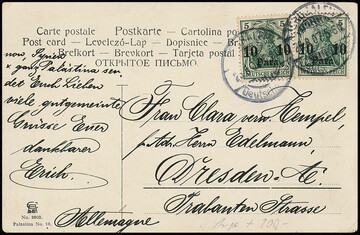 Carte postale Postkarte Cartolina po
Post card — Levelező-Lap — Dopisnice — Br
Brefkort — Brevkort — Tarjeta posta
ОТКРЫТОЕ ПИСЬМО
5 10 10 Para
10 10 Para
DEUTSCHES
Palästina sen-
det Euch Lieben
viele gutgemeinte
Grüsse Euer
dankbarer
Erich.
Frau Clara verw. Hempel,
p. Adr. Herrn Edelmann,
Dresden-A.
Trabanten Strasse
Allemagne
No.
Palästina No.